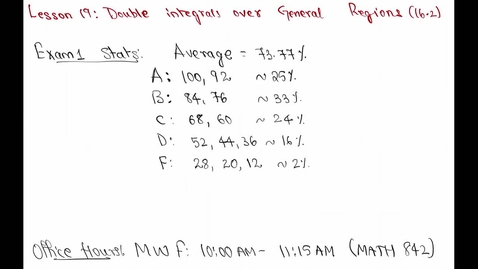 Lesson 19: Double integrals over General Regions (16.2)
Exam 1 Stats: Average = 73.77%
A: 100, 92 ~ 25%
B: 84, 76 ~ 33%
C: 68, 60 ~ 24%
D: 52, 44, 36 ~ 16%
F: 28, 20, 12 ~ 2%
Office Hours: MWF: 10:00 AM - 11:15 AM (MATH 842)